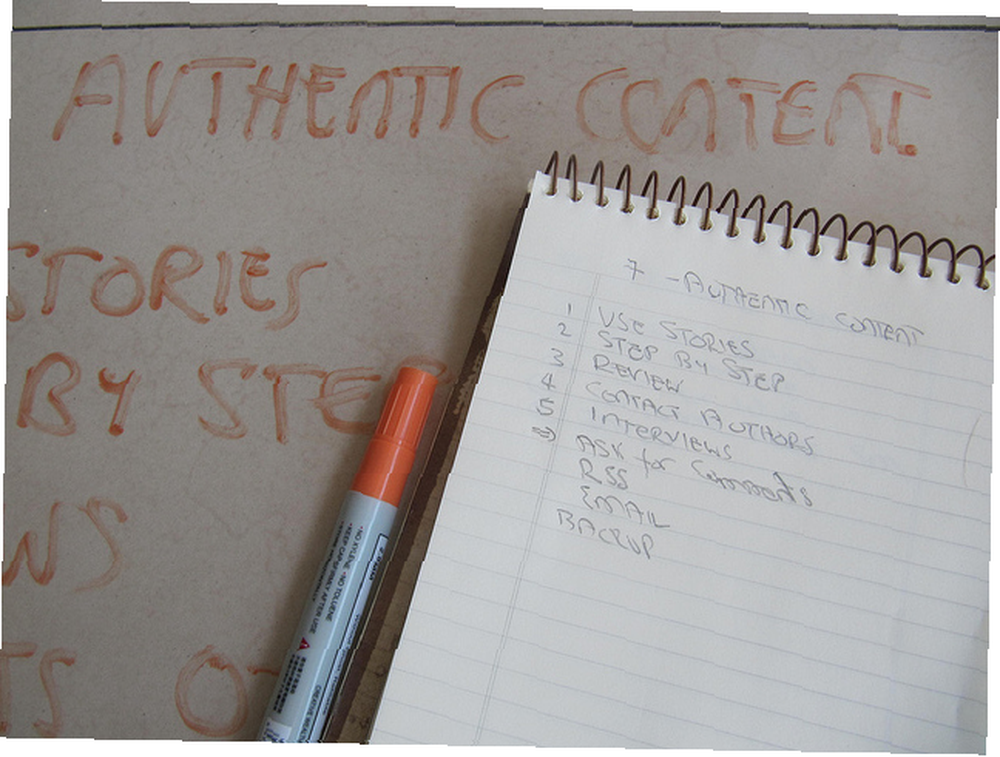 AUTHENTIC CONTENT
STORIES
BY STEP
NS
TS O
7 - AUTHENTIC CONTENT
1 USE STORIES
2 STEP BY STEP
3 REVIEW
4 CONTACT AUTHORS
5 INTERVIEWS
⇒ ASK for Comments
RSS
EMAIL
BACKUP
•NO XYLENE •NO TOLUENE
•KEEP CAP FIRMLY AFTER USE